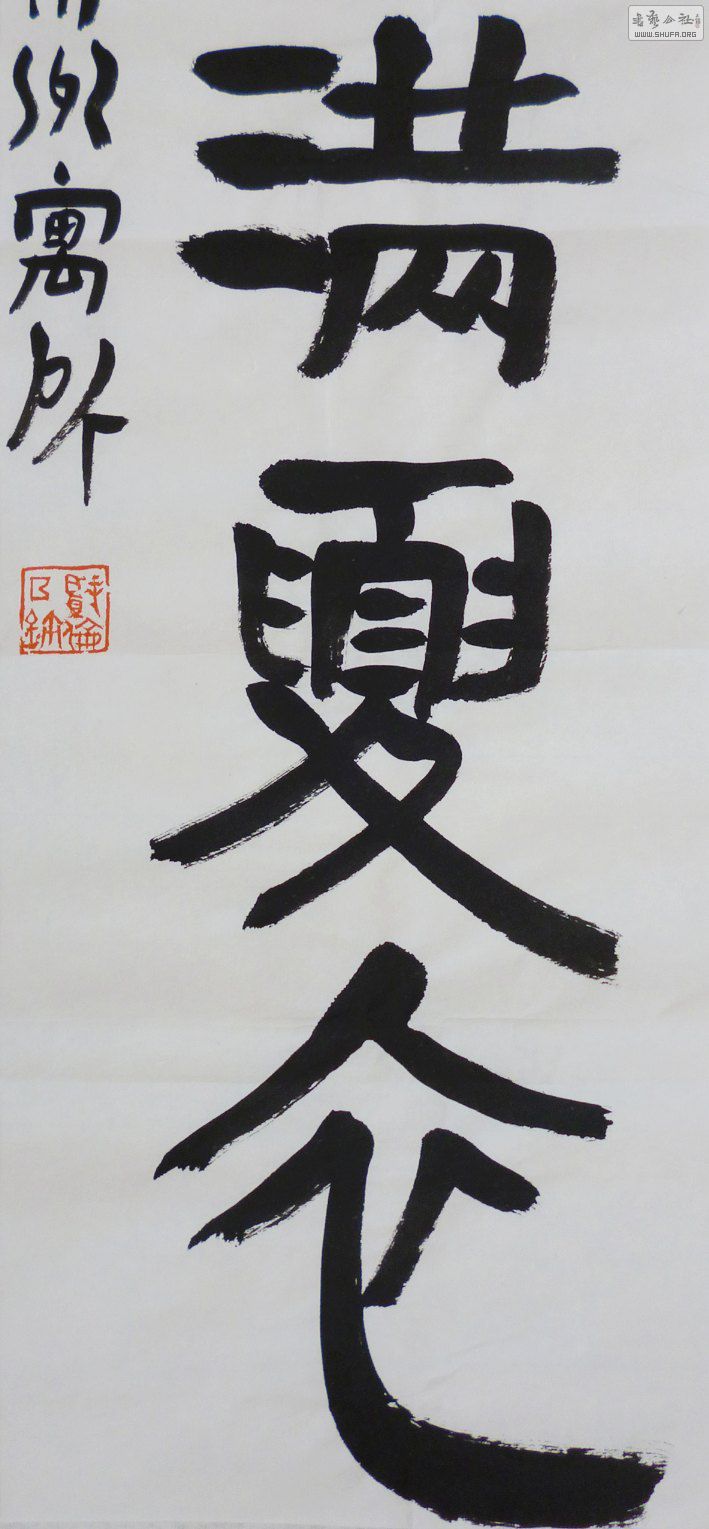 滿夏衣
州寓所
书艺公社
WWW.SHUFA.ORG